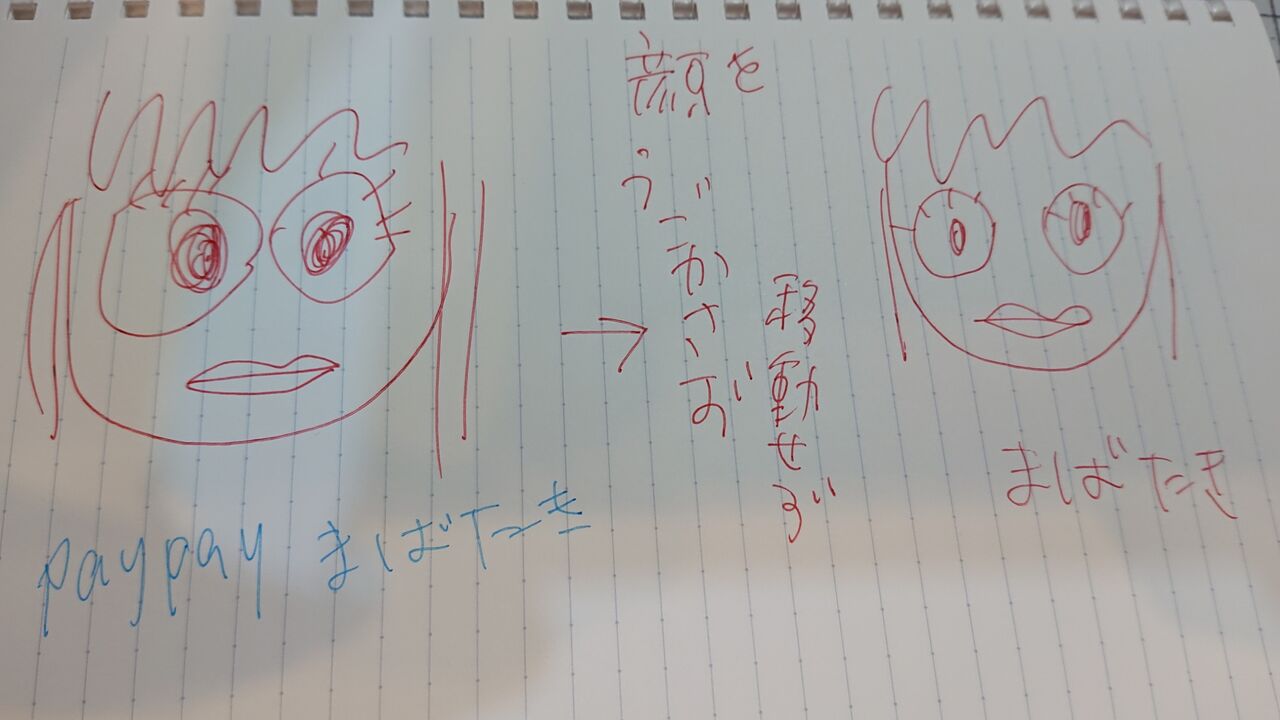 顔を
うごかさず
移動せず
まばたき
paypay まばたき